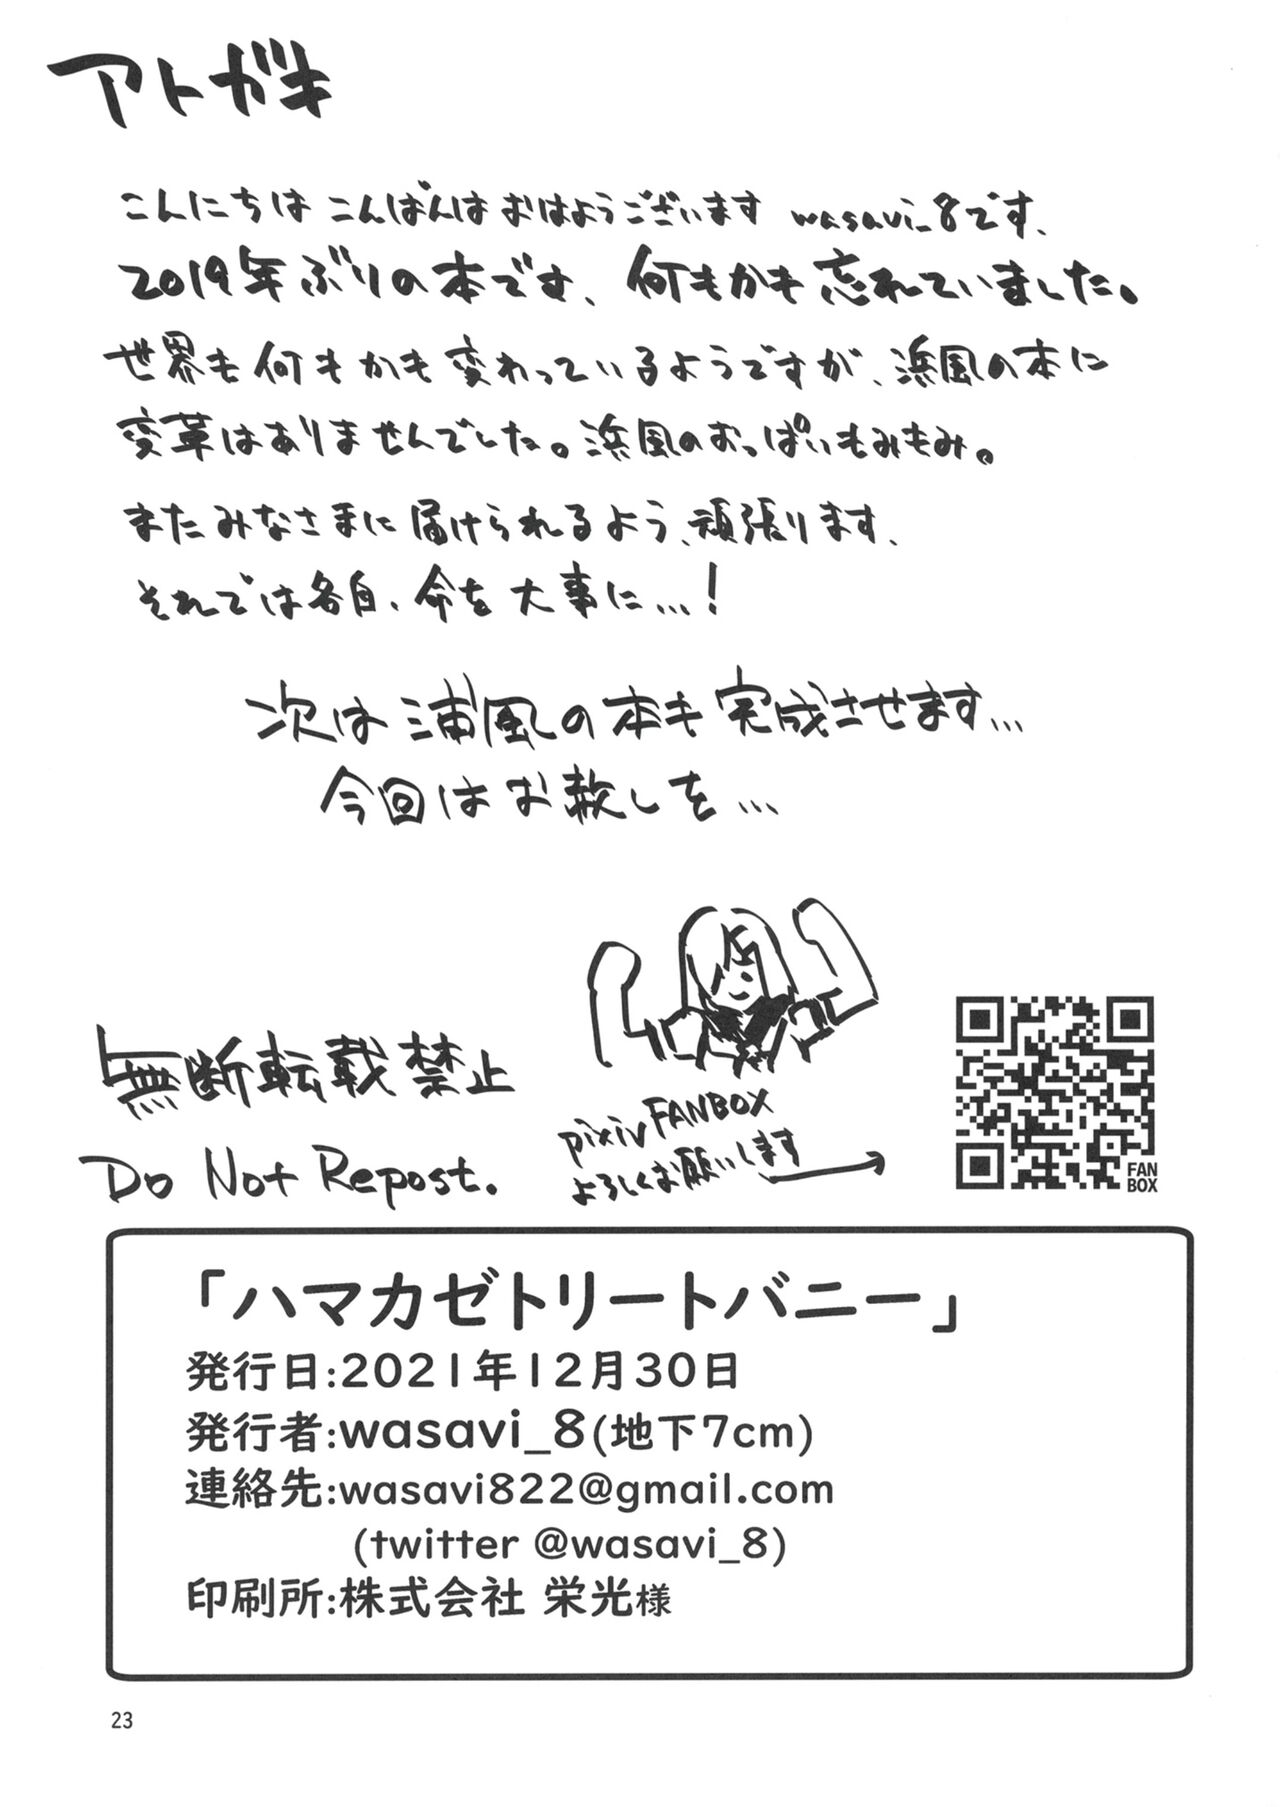 アトガキ
こんにちは こんばんは おはようございます wasavi_8です、
2019年ぶりの本です、何もかも忘れていました。
世界も何もかも変わっているようですが、浜風の本に
変革はありませんでした。浜風のおっぱいもみもみ。
またみなさまに届けられるよう、頑張ります、
それでは各自、命を大事に…!
次は浦風の本も完成させます…
今回はお赦しを…
無断転載禁止
Do Not Repost.
pixivFANBOX
よろしくお願いします
FAN
BOX
「ハマカゼトリートバニー」
発行日:2021年12月30日
発行者:wasavi_8(地下7cm)
連絡先:wasavi822@gmail.com
(twitter @wasavi_8)
印刷所:株式会社 栄光様
23